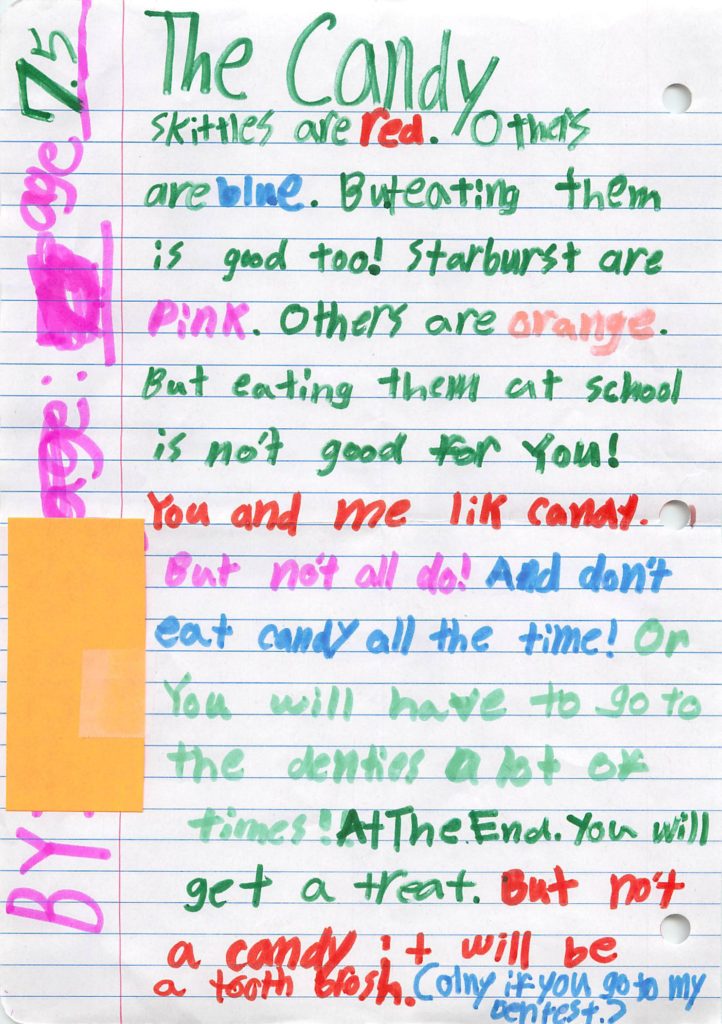 The Candy
skittles are red. Others
are blue. But eating them
is good too! Starburst are
Pink. Others are orange.
But eating them at school
is no't good for you!
You and me lik candy.
But no't all do! And don't
eat candy all the time! Or
You will have to go to
the denties a lot of
times! At The End. You will
get a treat. But no't
a candy it will be
a tooth brosh. Colny if you go to my
Dentest.?
BY:
age:
age 7.5